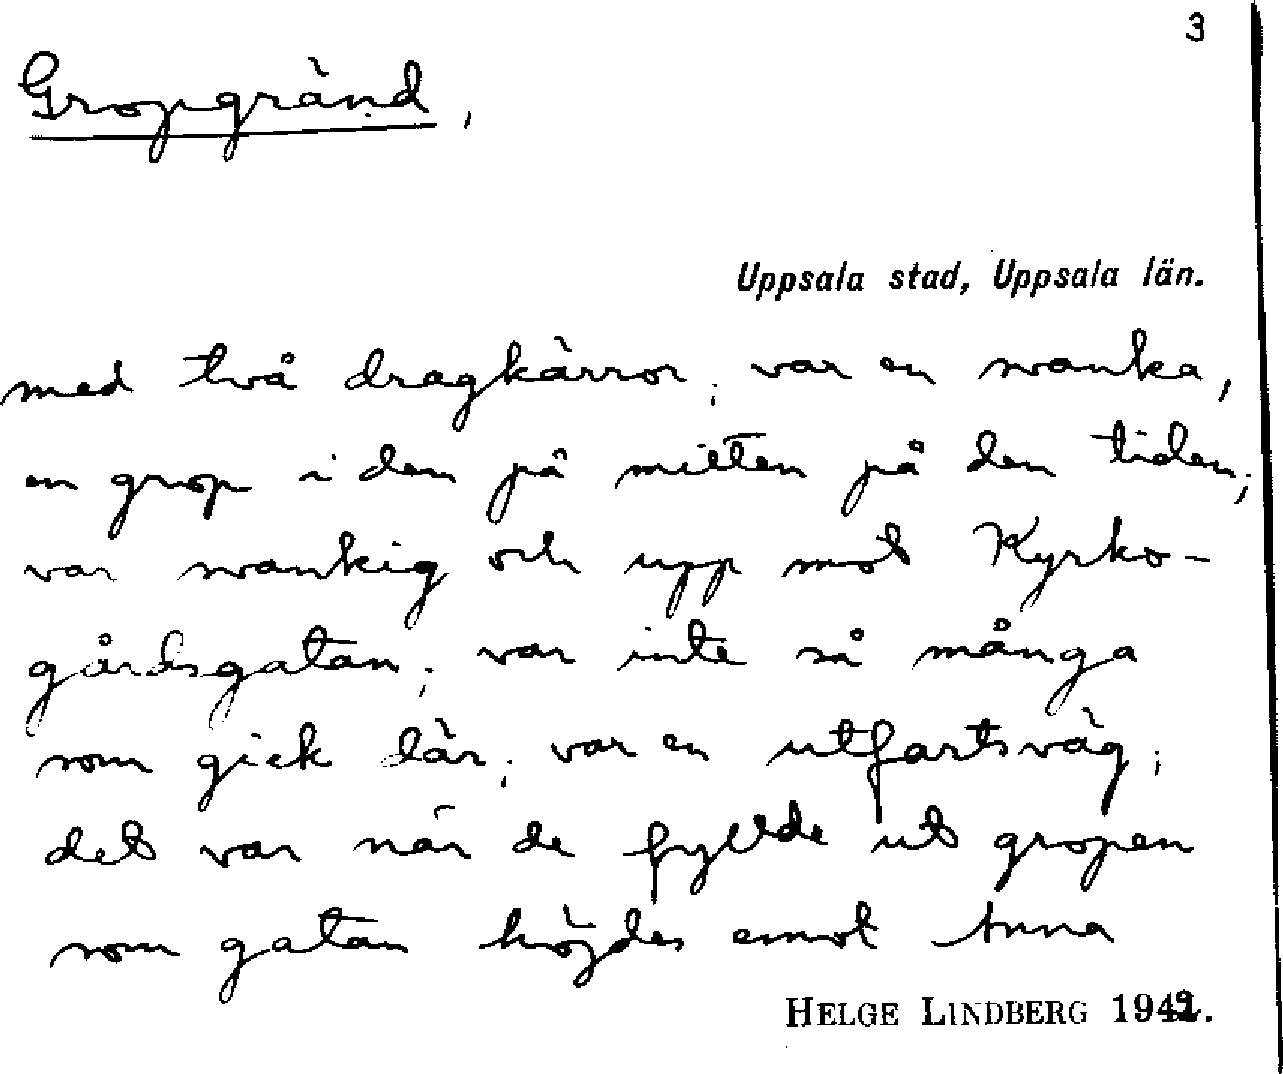 3
Gropgränd,
Uppsala stad, Uppsala län.
med två dragkärror; var en svanka,
en grop i den på mitten på den tiden;
var svankig och upp mot Kyrko-
gårdsgatan; var inte så många
som gick där; var en utfartsväg;
det var när de fyllde ut gropen
som gatan höjdes emot Anna
HELGE LINDBERG 1942.